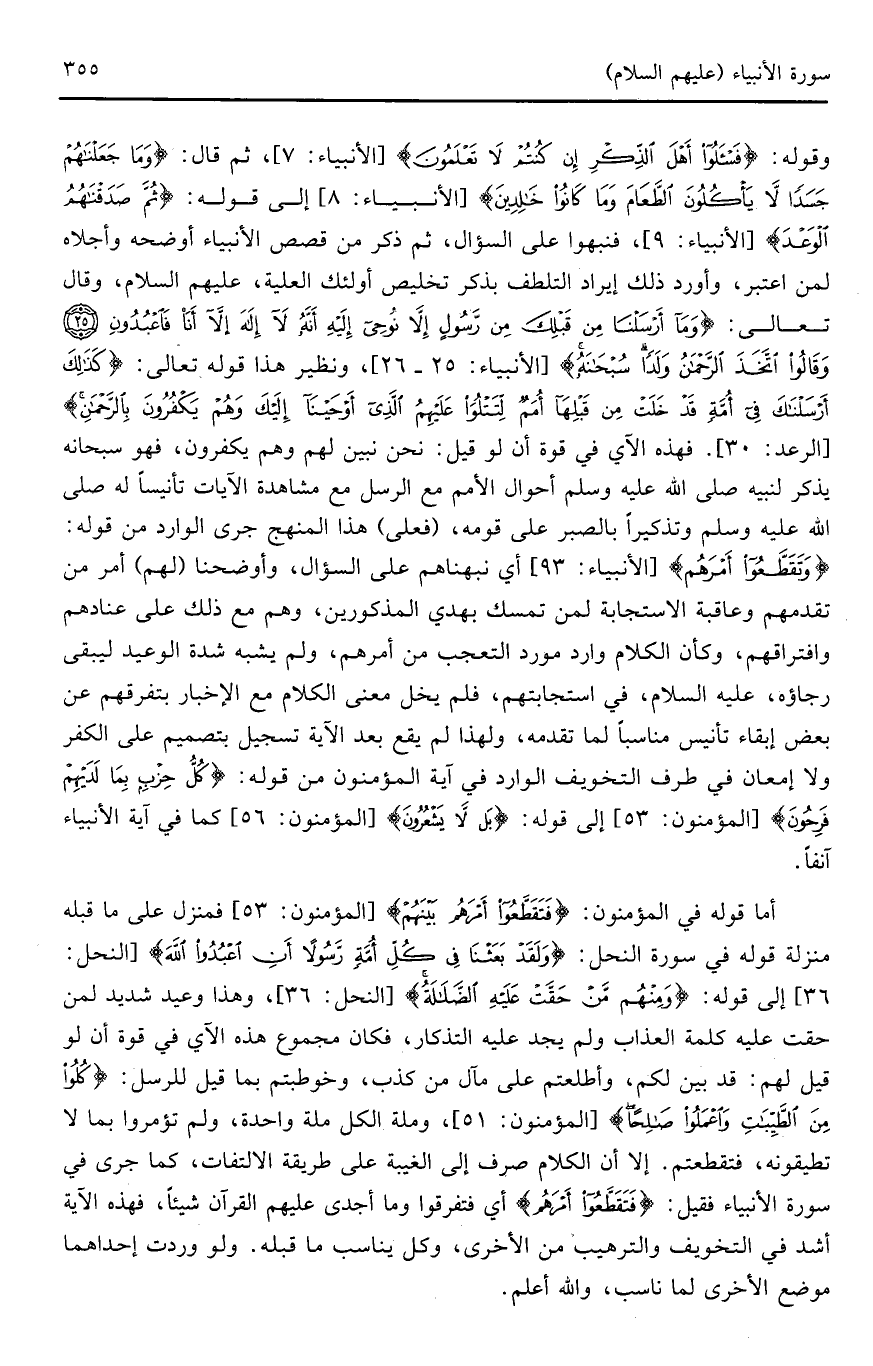 سورة الأنبياء (عليهم السلام) ٣٥٥
وقوله: ﴿فَسْـَٔلُوٓا۟ أَهْلَ ٱلذِّكْرِ إِن كُنتُمْ لَا تَعْلَمُونَ﴾ [الأنبياء: ٧]، ثم قال: ﴿وَمَا جَعَلْنَٰهُمْ
جَسَدًا لَّا يَأْكُلُونَ ٱلطَّعَامَ وَمَا كَانُوا۟ خَٰلِدِينَ﴾ [الأنبياء: ٨] إلى قوله: ﴿ثُمَّ صَدَقْنَٰهُمُ
ٱلْوَعْدَ﴾ [الأنبياء: ٩]، فنبهوا على السؤال، ثم ذكر من قصص الأنبياء أوضحه وأجلاه
لمن اعتبر، وأورد ذلك إيراد التلطف بذكر تخليص أولئك العلية، عليهم السلام، وقال
تعالى: ﴿وَمَآ أَرْسَلْنَا مِن قَبْلِكَ مِن رَّسُولٍ إِلَّا نُوحِىٓ إِلَيْهِ أَنَّهُۥ لَآ إِلَٰهَ إِلَّآ أَنَا۠ فَٱعْبُدُونِ ۝٢٥
وَقَالُوا۟ ٱتَّخَذَ ٱلرَّحْمَٰنُ وَلَدًا ۗ سُبْحَٰنَهُۥ ۚ﴾ [الأنبياء: ٢٥ ـ ٢٦]، ونظير هذا قوله تعالى: ﴿كَذَٰلِكَ
أَرْسَلْنَٰكَ فِىٓ أُمَّةٍ قَدْ خَلَتْ مِن قَبْلِهَآ أُمَمٌ لِّتَتْلُوَا۟ عَلَيْهِمُ ٱلَّذِىٓ أَوْحَيْنَآ إِلَيْكَ وَهُمْ يَكْفُرُونَ بِٱلرَّحْمَٰنِ ۚ﴾
[الرعد: ٣٠]. فهذه الآي في قوة أن لو قيل: نحن نبين لهم وهم يكفرون، فهو سبحانه
يذكر لنبيه صلى الله عليه وسلم أحوال الأمم مع الرسل مع مشاهدة الآيات تأنيساً له صلى
الله عليه وسلم وتذكيراً بالصبر على قومه، (فعلى) هذا المنهج جرى الوارد من قوله:
﴿وَتَقَطَّعُوٓا۟ أَمْرَهُم﴾ [الأنبياء: ٩٣] أي نبهناهم على السؤال، وأوضحنا (لهم) أمر من
تقدمهم وعاقبة الاستجابة لمن تمسك بهدي المذكورين، وهم مع ذلك على عنادهم
وافتراقهم، وكأن الكلام وارد مورد التعجب من أمرهم، ولم يشبه شدة الوعيد ليبقى
رجاؤه، عليه السلام، في استجابتهم، فلم يخل معنى الكلام مع الإخبار بتفرقهم عن
بعض إبقاء تأنيس مناسباً لما تقدمه، ولهذا لم يقع بعد الآية تسجيل بتصميم على الكفر
ولا إمعان في طرف التخويف الوارد في آية المؤمنون من قوله: ﴿كُلُّ حِزْبٍۭ بِمَا لَدَيْهِمْ
فَرِحُونَ﴾ [المؤمنون: ٥٣] إلى قوله: ﴿بَل لَّا يَشْعُرُونَ﴾ [المؤمنون: ٥٦] كما في آية الأنبياء
آنفاً.
أما قوله في المؤمنون: ﴿فَتَقَطَّعُوٓا۟ أَمْرَهُم بَيْنَهُمْ﴾ [المؤمنون: ٥٣] فمنزل على ما قبله
منزلة قوله في سورة النحل: ﴿وَلَقَدْ بَعَثْنَا فِى كُلِّ أُمَّةٍ رَّسُولًا أَنِ ٱعْبُدُوا۟ ٱللَّهَ﴾ [النحل:
٣٦] إلى قوله: ﴿وَمِنْهُم مَّنْ حَقَّتْ عَلَيْهِ ٱلضَّلَٰلَةُ ۚ﴾ [النحل: ٣٦]، وهذا وعيد شديد لمن
حقت عليه كلمة العذاب ولم يجد عليه التذكار، فكان مجموع هذه الآي في قوة أن لو
قيل لهم: قد بين لكم، وأطلعتم على مآل من كذب، وخوطبتم بما قيل للرسل: ﴿كُلُوا۟
مِنَ ٱلطَّيِّبَٰتِ وَٱعْمَلُوا۟ صَٰلِحًا ۖ﴾ [المؤمنون: ٥١]، وملة الكل ملة واحدة، ولم تؤمروا بما لا
تطيقونه، فتقطعتم. إلا أن الكلام صرف إلى الغيبة على طريقة الالتفات، كما جرى في
سورة الأنبياء فقيل: ﴿فَتَقَطَّعُوٓا۟ أَمْرَهُم﴾ أي فتفرقوا وما أجدى عليهم القرآن شيئاً، فهذه الآية
أشد في التخويف والترهيب من الأخرى، وكل يناسب ما قبله. ولو وردت إحداهما
موضع الأخرى لما ناسب، والله أعلم.